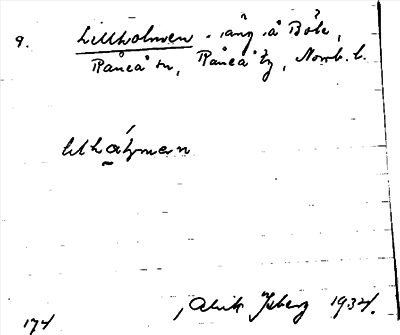 9. Lillholmen. äng å Böle,
Råneå sn, Råneå tg, Norrb. l.
174 Alvik Isberg 1934.